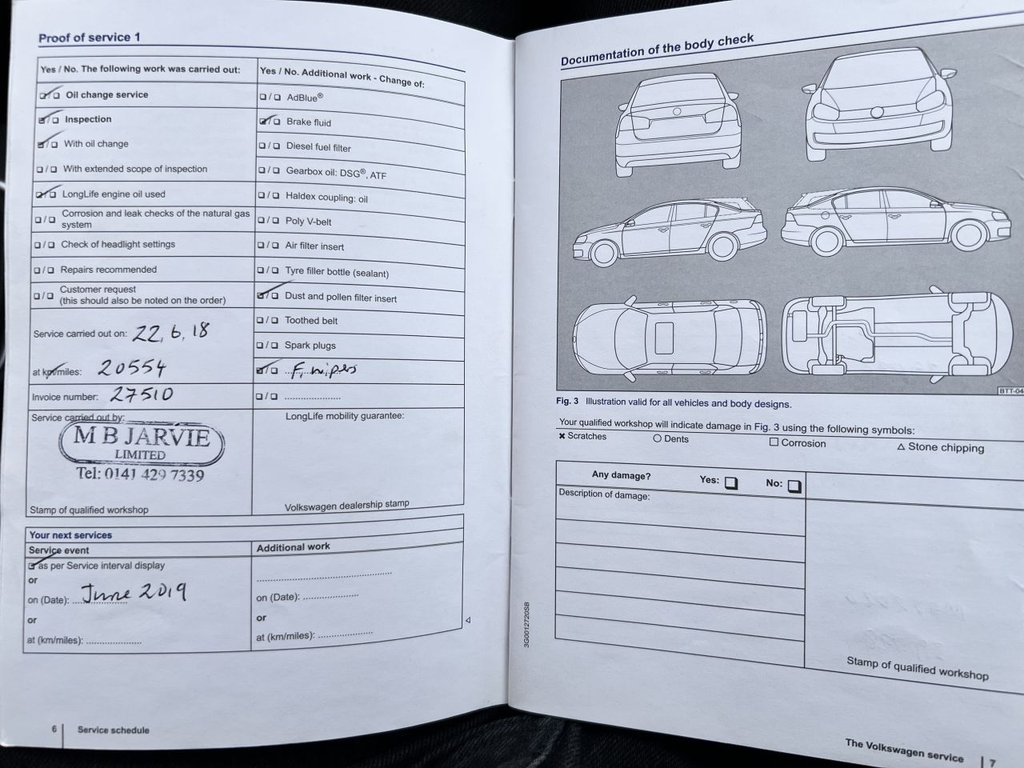 Proof of service 1
Yes / No. The following work was carried out:
☑/☐ Oil change service
☑/☐ Inspection
☑/☐ With oil change
☐/☐ With extended scope of inspection
☑/☐ LongLife engine oil used
☐/☐ Corrosion and leak checks of the natural gas
system
☐/☐ Check of headlight settings
☐/☐ Repairs recommended
☐/☐ Customer request
(this should also be noted on the order)
Service carried out on: 22, 6, 18
at km/miles: 20554
Invoice number: 27510
Service carried out by:
M B JARVIE
LIMITED
Tel: 0141 429 7339
Stamp of qualified workshop
Yes / No. Additional work - Change of:
☐/☐ AdBlue®
☑/☐ Brake fluid
☐/☐ Diesel fuel filter
☐/☐ Gearbox oil: DSG®, ATF
☐/☐ Haldex coupling: oil
☐/☐ Poly V-belt
☐/☐ Air filter insert
☐/☐ Tyre filler bottle (sealant)
☑/☐ Dust and pollen filter insert
☐/☐ Toothed belt
☐/☐ Spark plugs
☑/☐ F. wipes
☐/☐ ......................
LongLife mobility guarantee:
Volkswagen dealership stamp
Your next services
Service event
☑ as per Service interval display
or
on (Date): June 2019
or
at (km/miles): ..................
Additional work
............................................
on (Date): ..................
or
at (km/miles): ..................
6 Service schedule
Documentation of the body check
BTT-04
Fig. 3 Illustration valid for all vehicles and body designs.
Your qualified workshop will indicate damage in Fig. 3 using the following symbols:
✖ Scratches ○ Dents □ Corrosion △ Stone chipping
Any damage? Yes: ❑ No: ❑
Description of damage:
Stamp of qualified workshop
3G0012720SB
The Volkswagen service 7